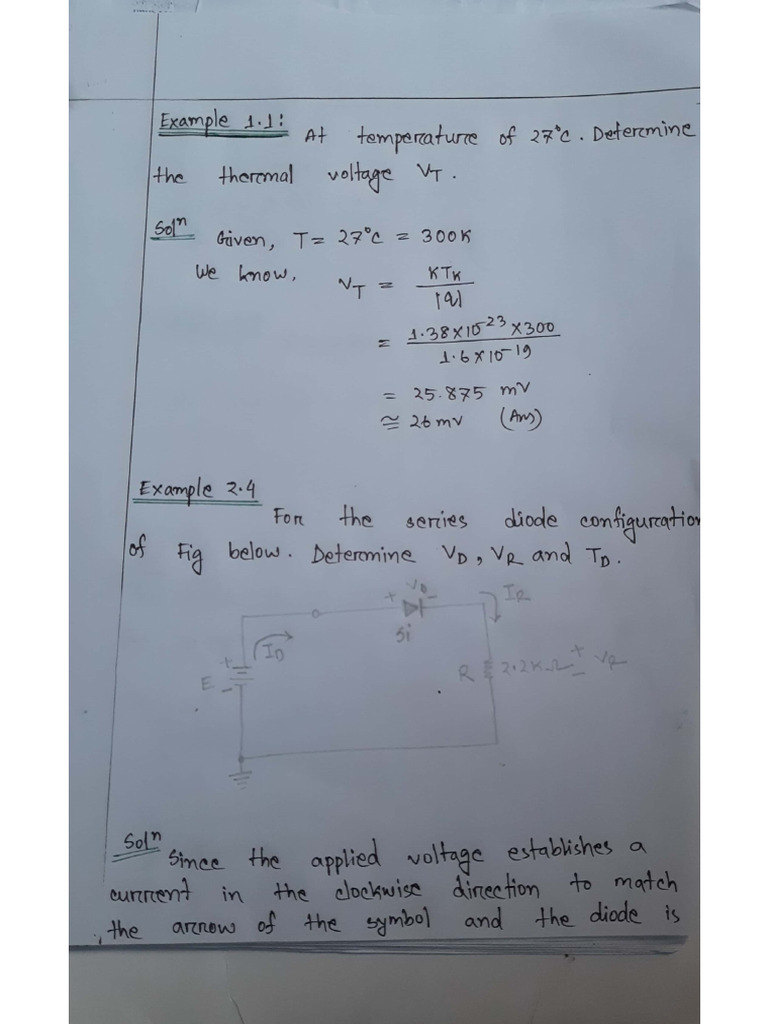 Example 1.1: At temperature of 27°C. Determine
the thermal voltage VT.
Solⁿ Given, T = 27°C = 300K
We know, VT = KTK / |q|
= 1.38×10⁻²³×300 / 1.6×10⁻¹⁹
= 25.875 mV
≅ 26mV (Ans)
Example 2.4
For the series diode configuration
of Fig below. Determine VD, VR and ID.
+ VD - IR
Si
+ ID
E -
R 2.2KΩ + VR -
Solⁿ Since the applied voltage establishes a
current in the clockwise direction to match
the arrow of the symbol and the diode is